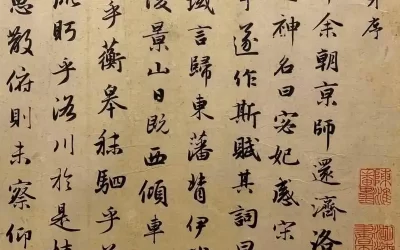 序
余朝京師還濟洛
神名曰宓妃感宋
遂作斯賦其詞曰
域言歸東藩背伊
陵景山日既西傾車
乎蘅皋秣駟乎
流眄乎洛川於是精
思散俯則未察仰